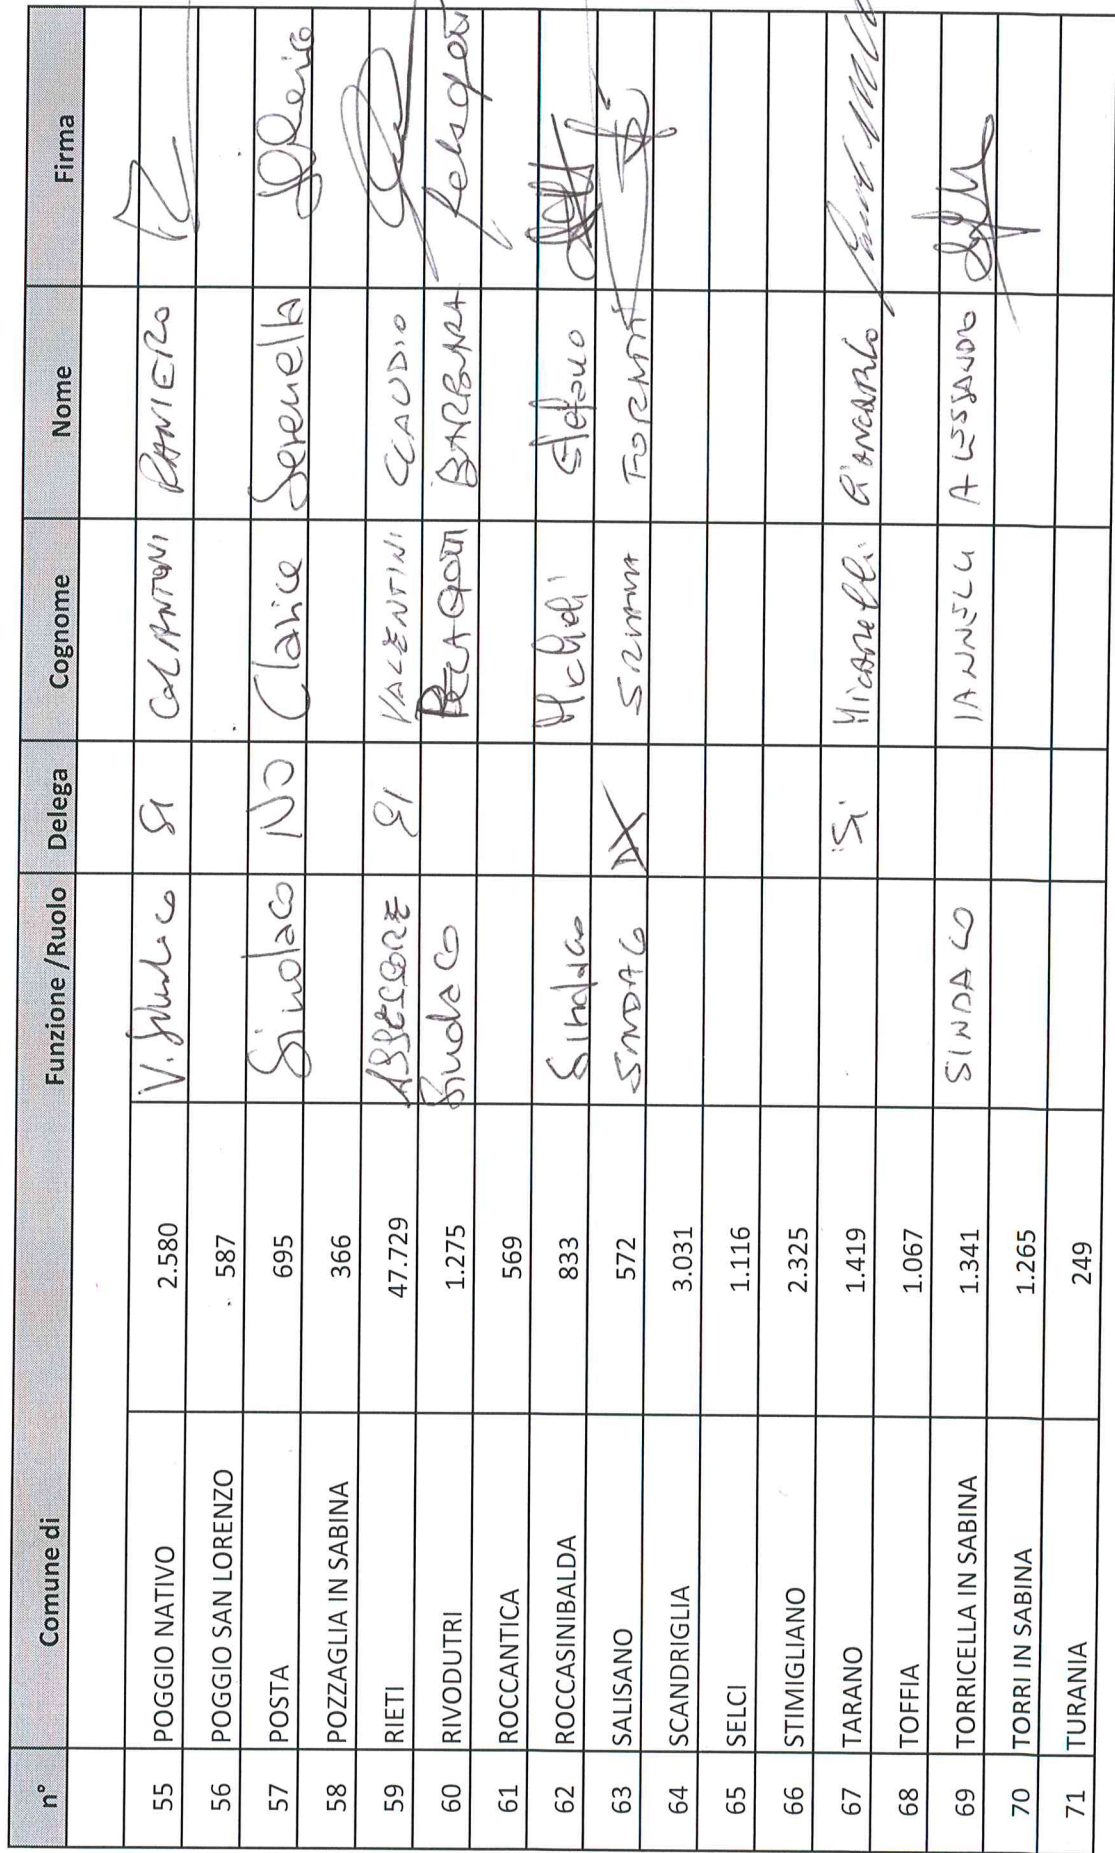 n° Comune di Funzione /Ruolo Delega Cognome Nome Firma
55 POGGIO NATIVO 2.580 V. Sindaco SI COLANTONI RANIERO
56 POGGIO SAN LORENZO 587
57 POSTA 695 Sindaco NO Clarice Serenella
58 POZZAGLIA IN SABINA 366
59 RIETI 47.729 ASSESSORE SI VALENTINI CLAUDIO
60 RIVODUTRI 1.275 Sindaco PELAGOTTI BARBARA
61 ROCCANTICA 569
62 ROCCASINIBALDA 833 Sindaco Micheli Stefano
63 SALISANO 572 SINDACO
64 SCANDRIGLIA 3.031
65 SELCI 1.116
66 STIMIGLIANO 2.325
67 TARANO 1.419 Si Micarelli Giancarlo
68 TOFFIA 1.067
69 TORRICELLA IN SABINA 1.341 SINDACO IANNELLI ALESSANDRO
70 TORRI IN SABINA 1.265
71 TURANIA 249